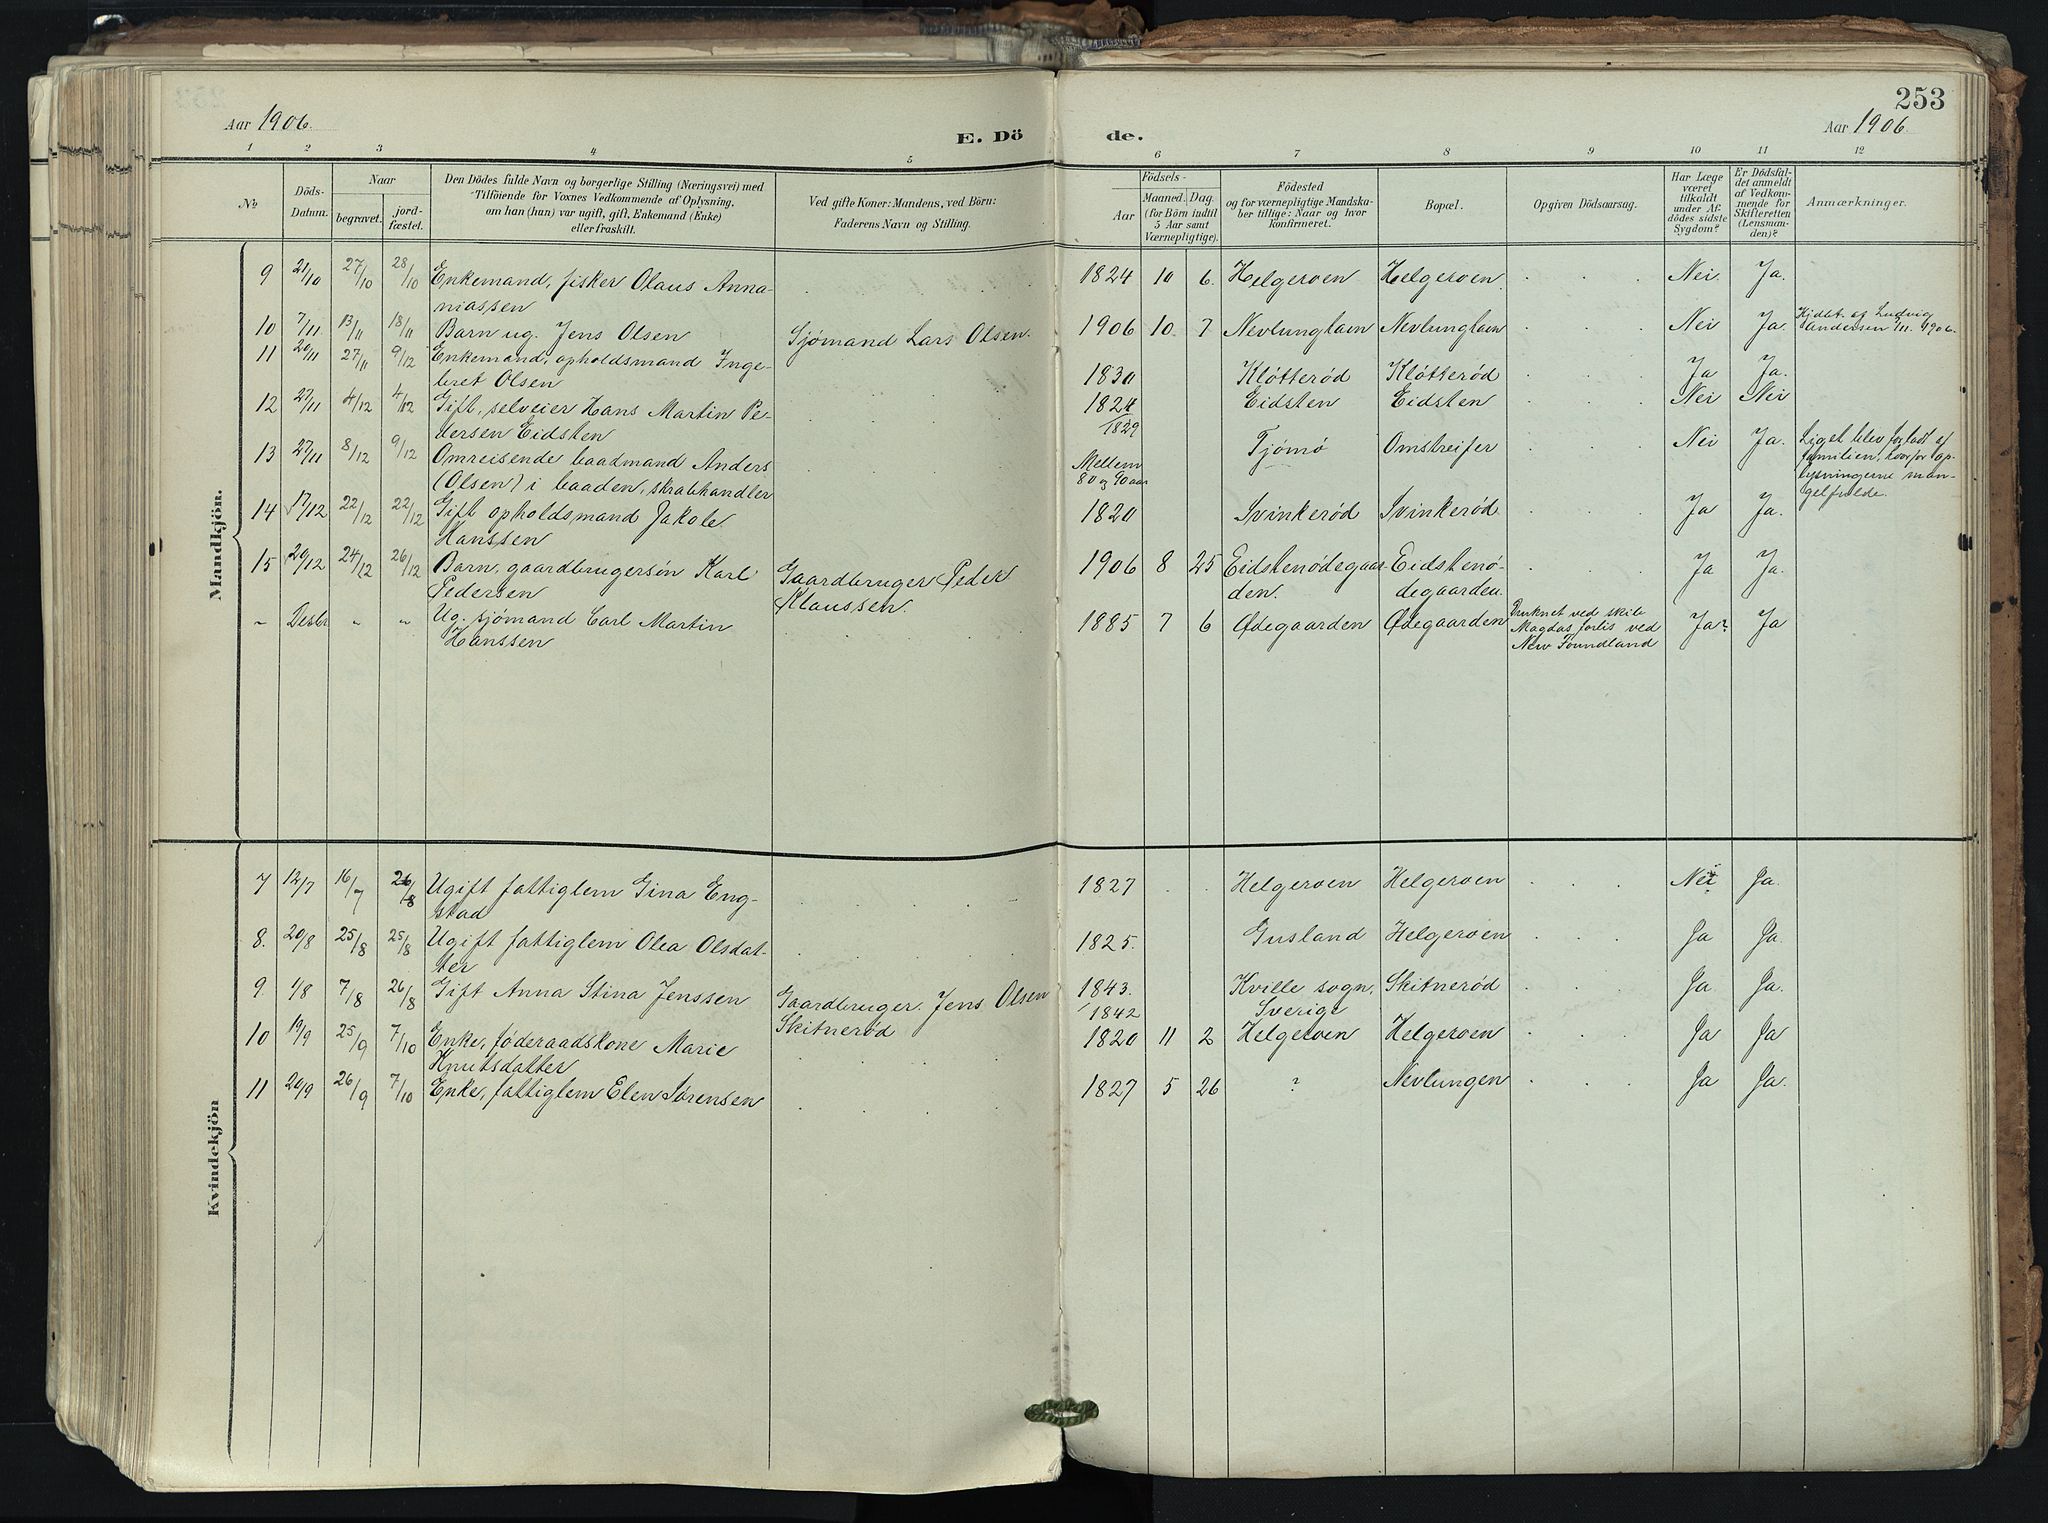 253
Aar 1906.
E. Dö
de.
Aar 1906.
1 2 3 4 5 6 7 8 9 10 11 12
No
Döds-Datum.
Naar
begravet.
jord-fæstet.
Den Dödes fulde Navn og borgerlige Stilling (Næringsvei) med
Tilföiende for Voxnes Vedkommende af Oplysning,
om han (hun) var ugift, gift, Enkemand (Enke)
eller fraskilt.
Ved gifte Koner: Mandens, ved Börn:
Faderens Navn og Stilling.
Födsels-
Aar
Maaned.
Dag.
(for Börn indtil
5 Aar samt
Værnepligtige).
Födested
og for værnepligtige Mandska-
ber tillige: Naar og hvor
konfirmeret.
Bopæl.
Opgiven Dödsaarsag.
Har Læge
været
tilkaldt
under Af-
dödes sidste
Sygdom?
Er Dödsfal-
det anmeldt
af Vedkom-
mende for
Skifteretten
(Lensman-
den)?
Anmærkninger.
Mandkjön.
9 21/10 27/10 28/10 Enkemand, fisker Olaus Anna- 1824 10 6. Helgeroen Helgeroen. Nei Ja.
niassen
10 7/11 13/11 18/11 Barn ug. Jens Olsen Sjømand Lars Olsen. 1906 10 7 Nevlunghavn Nevlunghavn Nei Ja. Hjdbt. af Ludvig
Andersen /11 1906.
11 20/11 27/11 9/12 Enkemand, opholdsmand Inge- 1830 Kløtterød Kløtterød Ja Ja.
bret Olsen
12 27/11 4/12 4/12 Gift, selveier Hans Martin Pe- 1824 Eidsten Eidsten Nei Nei
dersen Eidsten /1829
13 27/11 8/12 9/12 Omreisende baadmand Anders Mellem Tjømø Omstreifer Nei Ja. Liget blev forladt af
(Olsen) i baaden, skrabhandler 80 og 90 aar familien, hvorfor op-
lysningerne man-
gelfulde.
14 17/12 22/12 22/12 Gift opholdsmand Jakob 1820 Svinkerød Svinkerød Ja Ja.
Hanssen
15 20/12 24/12 26/12 Barn, gaardbrugersøn Karl Gaardbruger Peder 1906 8 25 Eidstenødegaar- Eidstenø- Ja Ja.
Pedersen Klaussen. den. degaarden.
„ Desbr „ „ Ug. sjømand Carl Martin 1885 7 6 Ødegaarden Ødegaarden Druknet ved skib Ja? Ja
Hanssen Magdas forlis ved
New Foundland
Kvindekjön
7 12/7 16/7 26/8 Ugift fattiglem Gina Eng- 1827 Helgeroen Helgeroen Nei Ja.
stad
8. 20/8 25/8 25/8 Ugift fattiglem Olea Olsdat- 1825. Gusland Helgeroen Ja Ja.
ter
9 1/8 7/8 26/8 Gift Anna Stina Jenssen Gaardbruger. Jens Olsen 1843. Kville sogn, Skitnerød Ja Ja.
Skitnerød /1842 Sverige
10 19/9 25/9 7/10 Enke, føderaadskone Marie 1820 11 2 Helgeroen Helgeroen Ja Ja
Knutsdatter
11 20/9 26/9 7/10 Enke, fattiglem Elen Sørensen 1827 5 26 ? Nevlungen Ja Ja.